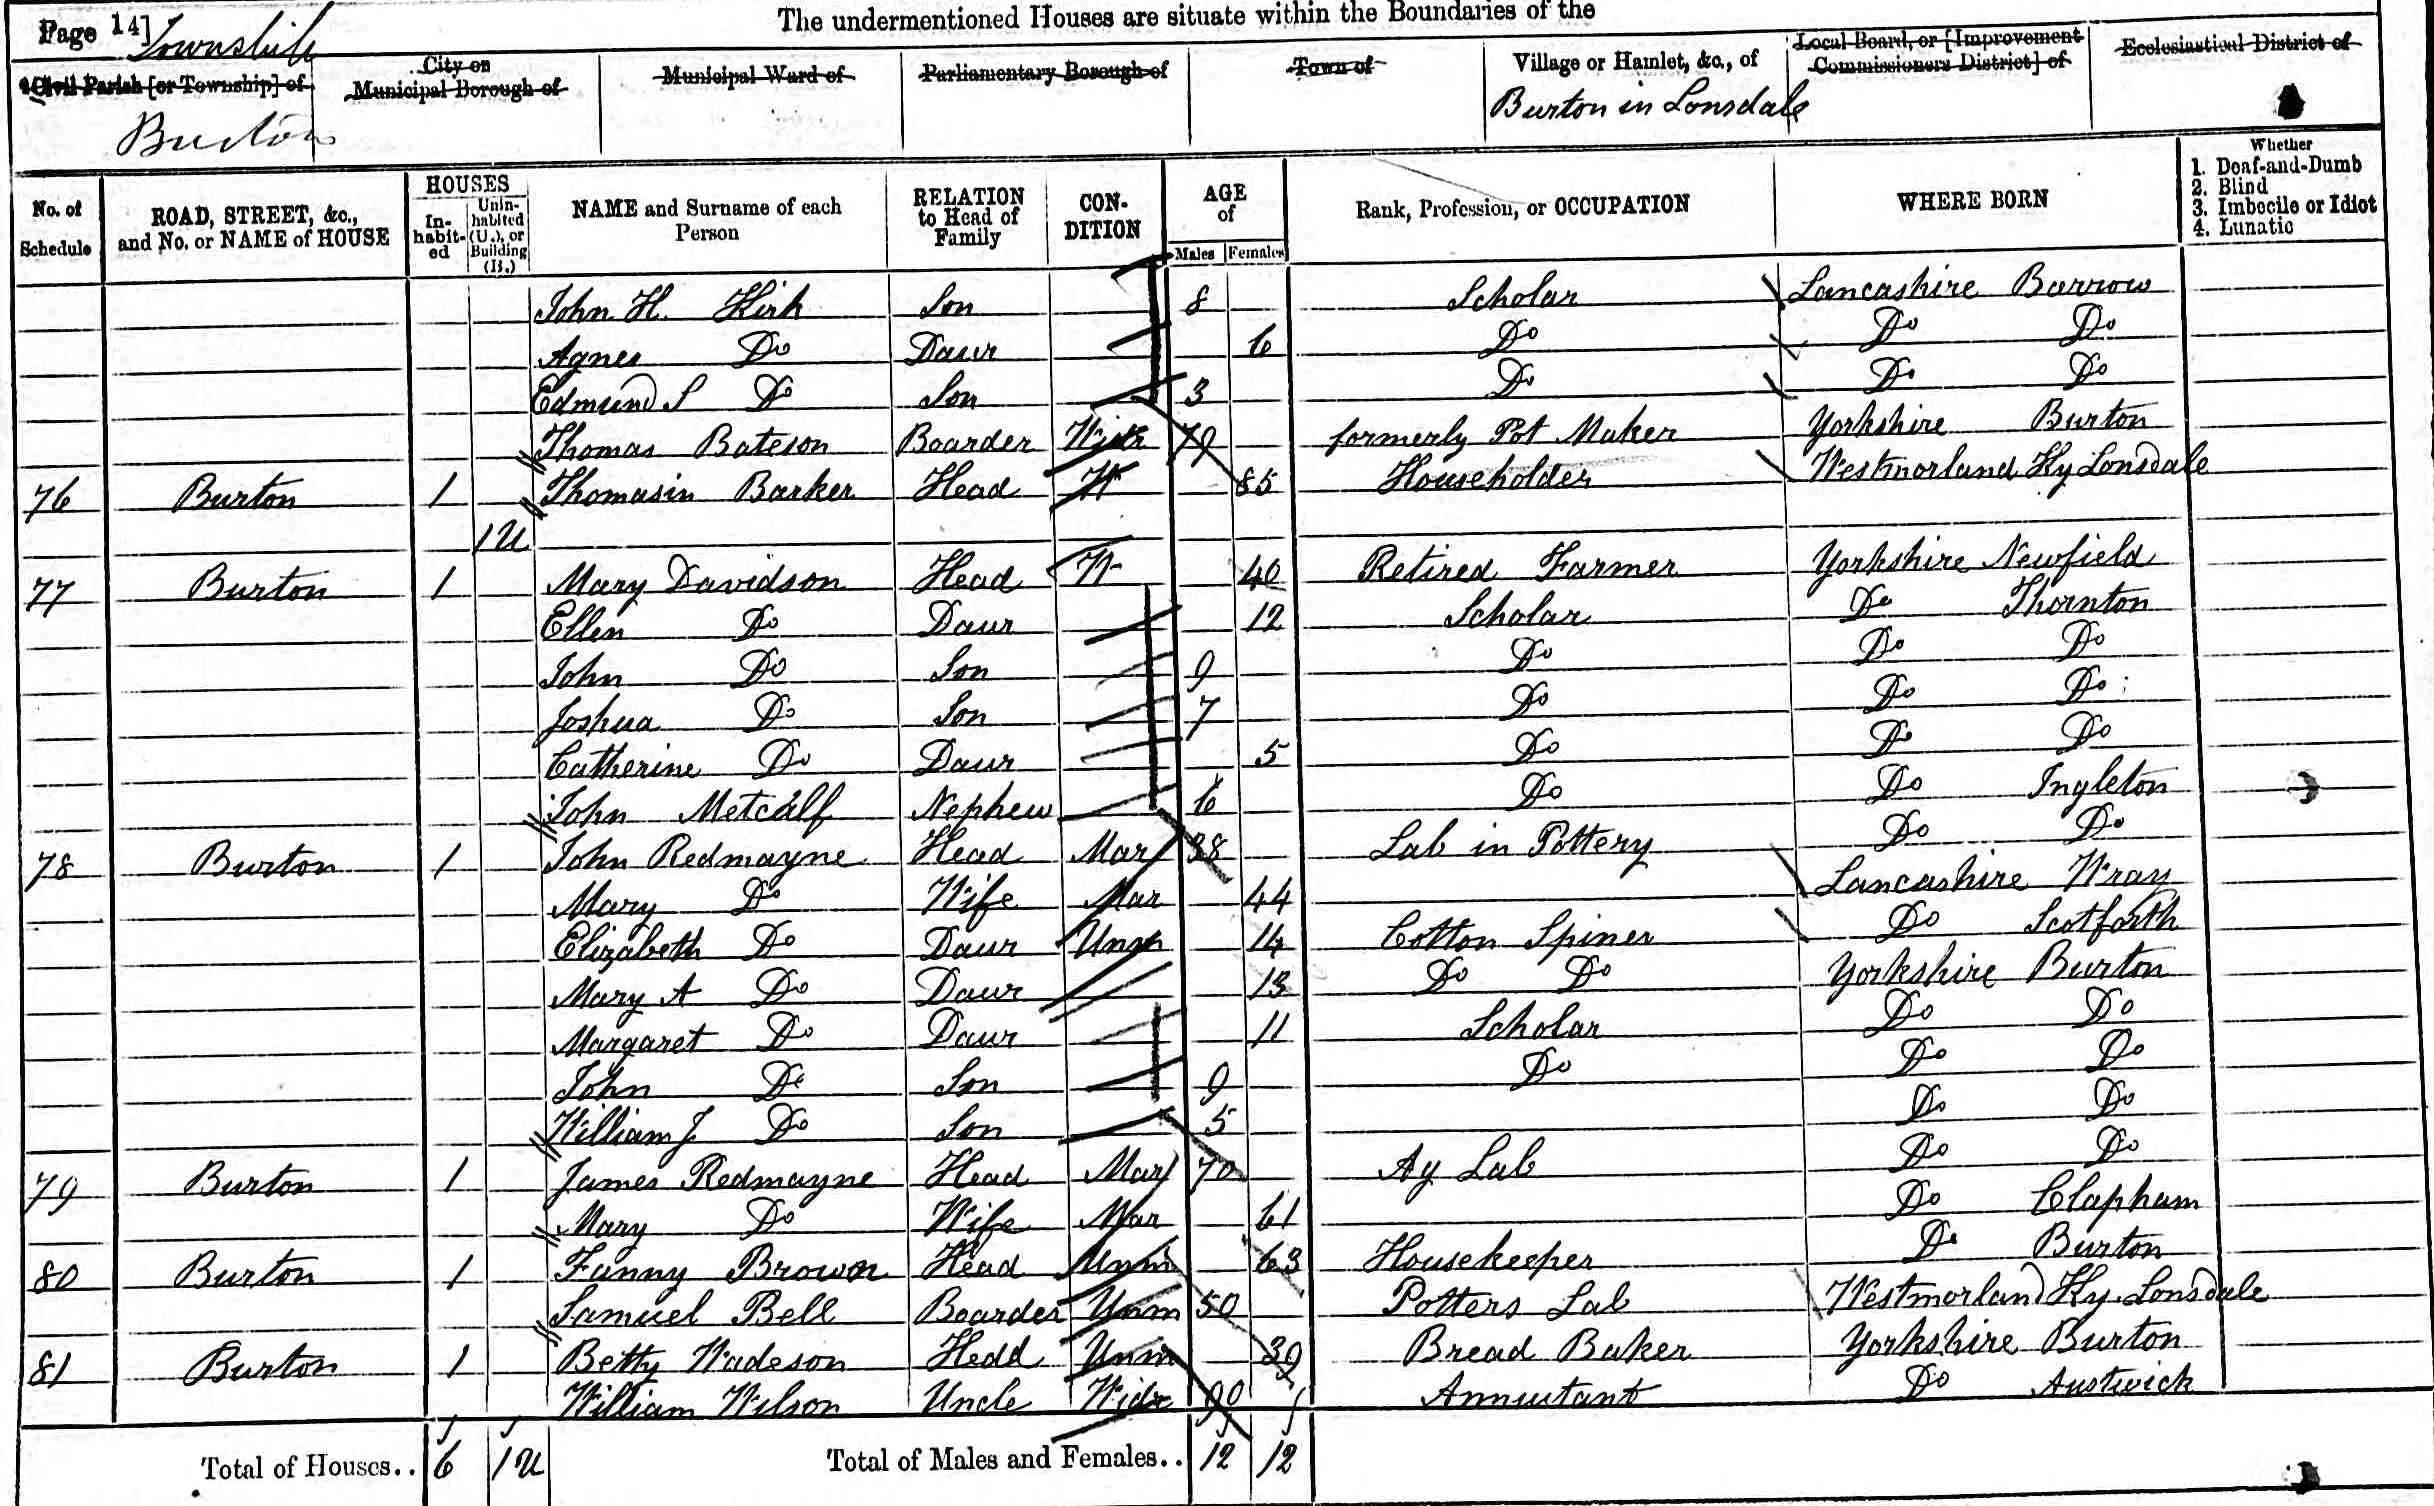 Page 14]
The undermentioned Houses are situate within the Boundaries of the
Township
Civil Parish [or Township] of
City or Municipal Borough of
Municipal Ward of
Parliamentary Borough of
Town of
Village or Hamlet, &c., of
Local Board, or [Improvement Commissioners District] of
Ecclesiastical District of
Burton
Burton in Lonsdale
No. of Schedule
ROAD, STREET, &c., and No. or NAME of HOUSE
HOUSES
In-habit-ed
Unin-habited (U.), or Building (B.)
NAME and Surname of each Person
RELATION to Head of Family
CON-DITION
AGE of
Males Females
Rank, Profession, or OCCUPATION
WHERE BORN
Whether
1. Deaf-and-Dumb
2. Blind
3. Imbecile or Idiot
4. Lunatic
John H. Kirk Son 8 Scholar Lancashire Barrow
Agnes Do Daur 6 Do Do Do
Edmund S Do Son 3 Do Do Do
Thomas Bateson Boarder Widr 79 formerly Pot Maker Yorkshire Burton
76 Burton 1 Thomasin Barker Head W 85 Householder Westmorland Ky Lonsdale
1U
77 Burton 1 Mary Davidson Head W 40 Retired Farmer Yorkshire Newfield
Ellen Do Daur 12 Scholar Do Thornton
John Do Son 9 Do Do Do
Joshua Do Son 7 Do Do Do
Catherine Do Daur 5 Do Do Do
John Metcalf Nephew 6 Do Do Ingleton
78 Burton 1 John Redmayne Head Mar 38 Lab in Pottery Do Do
Mary Do Wife Mar 44 Lancashire Wray
Elizabeth Do Daur Unm 14 Cotton Spiner Do Scotforth
Mary A Do Daur 13 Do Do Yorkshire Burton
Margaret Do Daur 11 Scholar Do Do
John Do Son 9 Do Do Do
William J Do Son 5 Do Do
79 Burton 1 James Redmayne Head Mar 70 Ag Lab Do Do
Mary Do Wife Mar 61 Do Clapham
80 Burton 1 Fanny Brown Head Unm 63 Housekeeper Do Burton
Samuel Bell Boarder Unm 50 Potters Lab Westmorland Ky. Lonsdale
81 Burton 1 Betty Wadeson Hedd Unm 39 Bread Baker Yorkshire Burton
William Wilson Uncle Widr 90 Annuitant Do Austwick
Total of Houses.. 6 1U Total of Males and Females.. 12 12